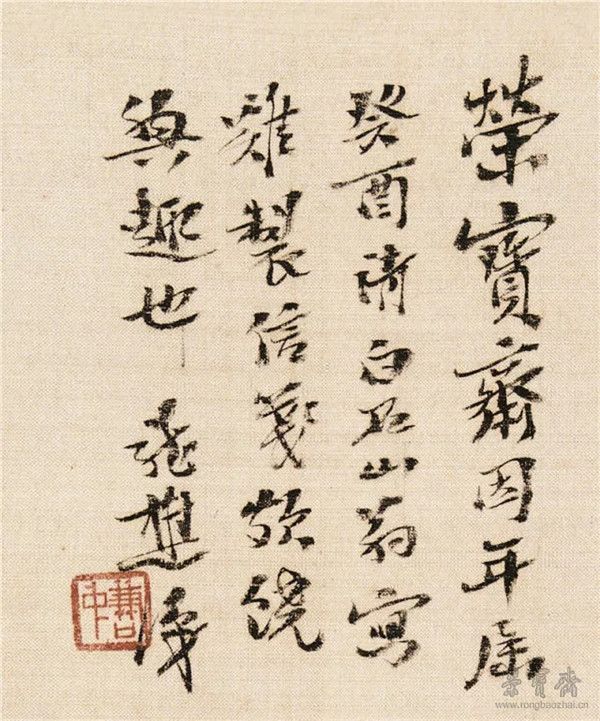 榮寶齋因年屬
癸酉請白石山翁寫
雞製信箋頗饒
興趣也 張樵
榮寶齋
www.rongbaozhai.cn